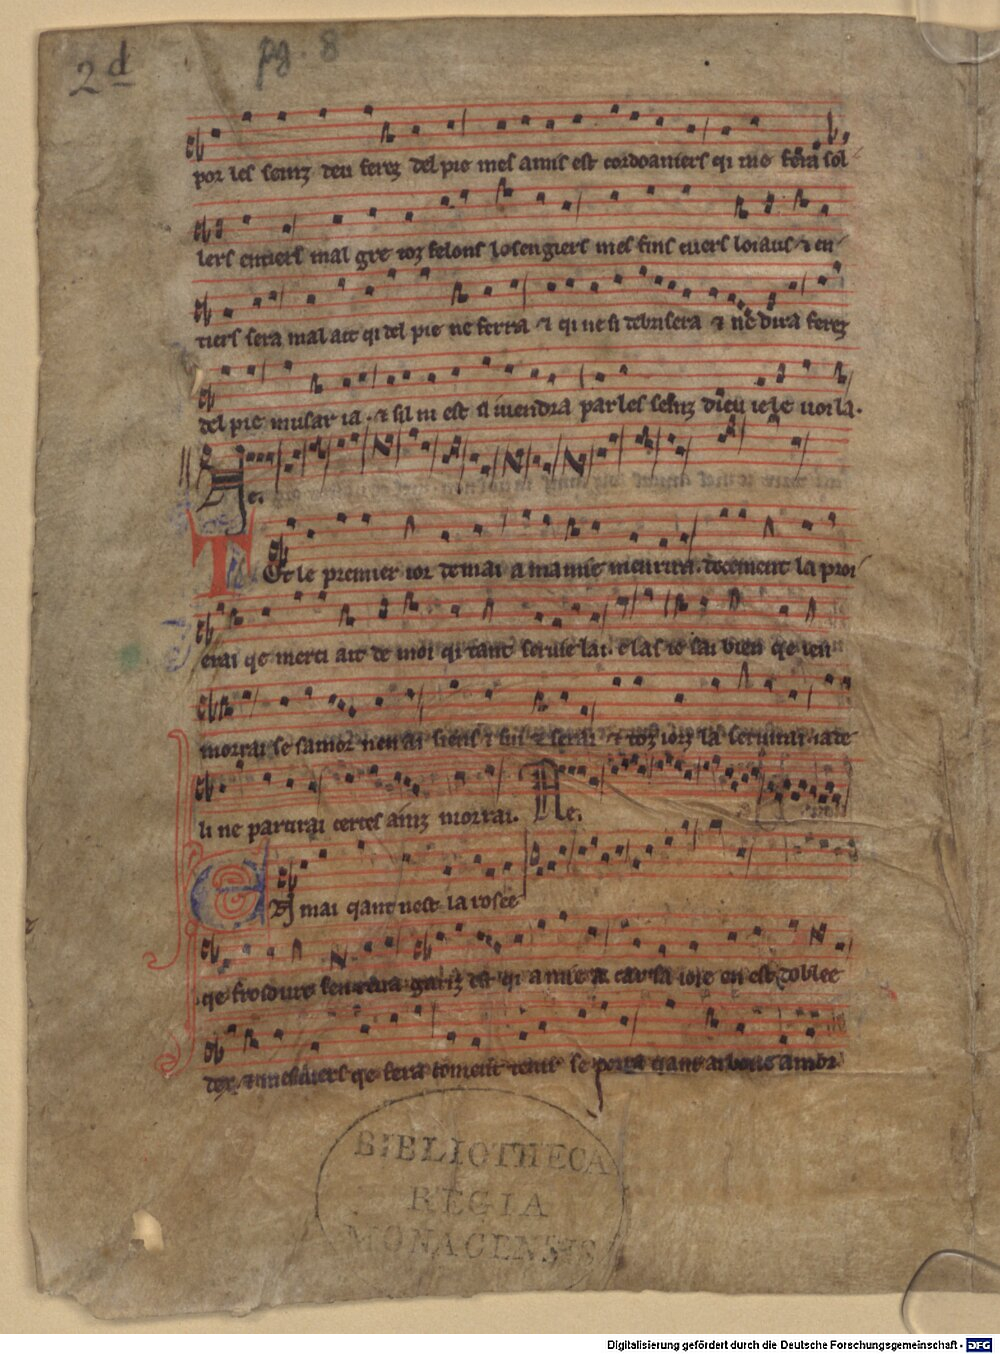 2d
pg. 8
por les seinz deu ferez del pie mes amis est cordoaniers qi me fera sol
lers entiers mal gre toz felons losengiers mes fins cuers loiaus & en
tiers sera mal ait qi del pie ne ferra & qi ne si debrisera & ne dira ferez
del pie musar ia. & sil ni est il i vendra par les seinz dieu ie le voi la.
Ae.
Tot le premier ior de mai a mamie men irai. docement la proi
erai qe merci ait de moi qi tant servie lai. e las ie sai bien qe ien
morrai se samor nen ai siens & sui & serai & toz iorz la servirai. ia de
li ne partirai certes ainz morrai. Ae.
En mai qant nest la rosee
qe froidure sen reva gariz est qi amie a car sa ioie en est doblee
dex. & mes cuers qe fera coment tenir se porra qant ai bone amor
BIBLIOTHECA
REGIA
MONACENSIS
Digitalisierung gefördert durch die Deutsche Forschungsgemeinschaft - DFG